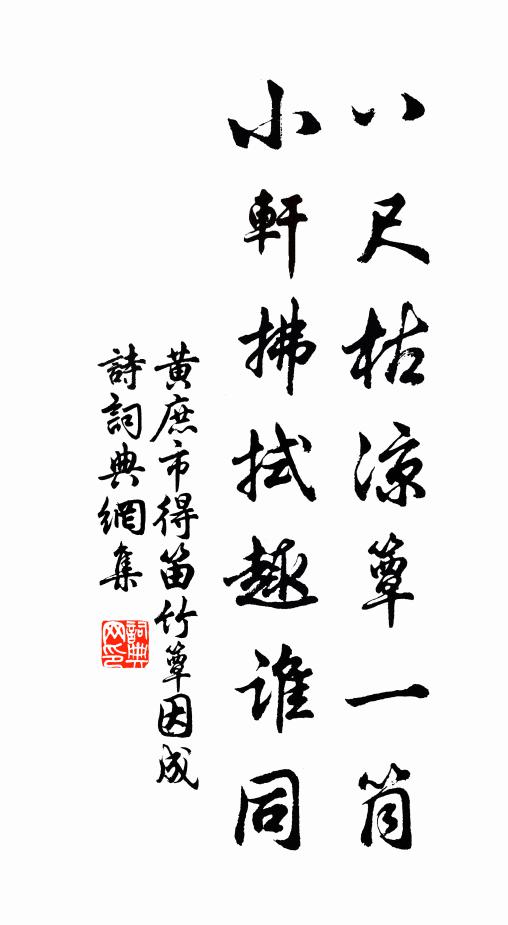 八尺枯涼簟一筒
小軒拂拭趣誰同
黃庶市得笛竹簟因成
詩詞典網集
詞典網印